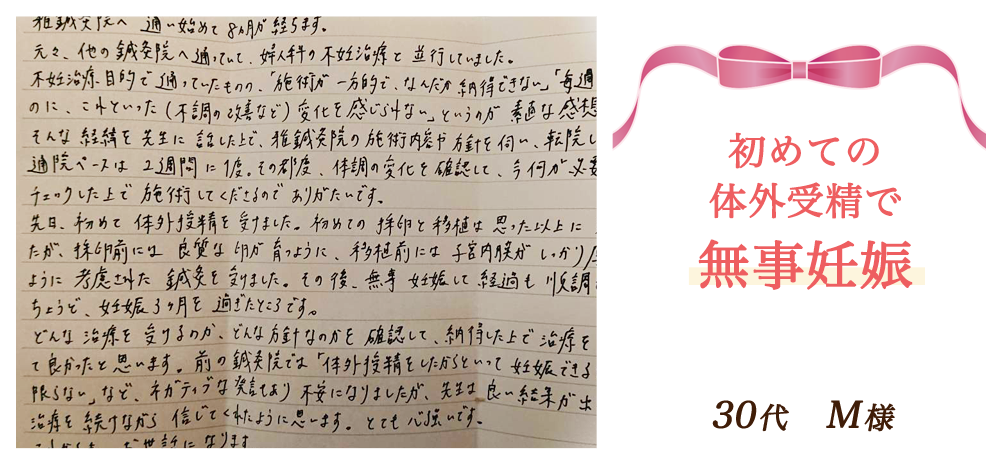 雅鍼灸院へ 通い始めて 8ヵ月が 経ちます。
元々、他の鍼灸院へ通っていて、婦人科の不妊治療と並行していました。
不妊治療目的で通っていたものの、「施術が一方的で、なんだか納得できない」「毎週
のに、これといった(不調の改善など)変化を感じられない」というのが 素直な感想
そんな経緯を先生に話した上で、雅鍼灸院の施術内容や方針を伺い、転院し
通院ペースは 2週間に1度。その都度、体調の変化を確認して、今何が必要
チェックした上で施術してくださるので ありがたいです。
先日、初めて体外授精を受けました。初めての採卵と移植は思った以上に
たが、採卵前には 良質な卵が育つように、移植前には子宮内膜が しっかり
ように考慮された 鍼灸を受けました。その後、無事 妊娠して経過も順調
ちょうど、妊娠3ヶ月を過ぎたところです。
どんな治療を受けるのか、どんな方針なのかを確認して、納得した上で治療を
て良かったと思います。前の鍼灸院では「体外授精をしたからといって妊娠できる
限らない」など、ネガティブな発言もあり 不安になりましたが、先生は良い結果が出
治療を続けながら信じてくれたように思います。とても心強いです。
お世話になります
初めての
体外受精で
無事妊娠
30代 M様